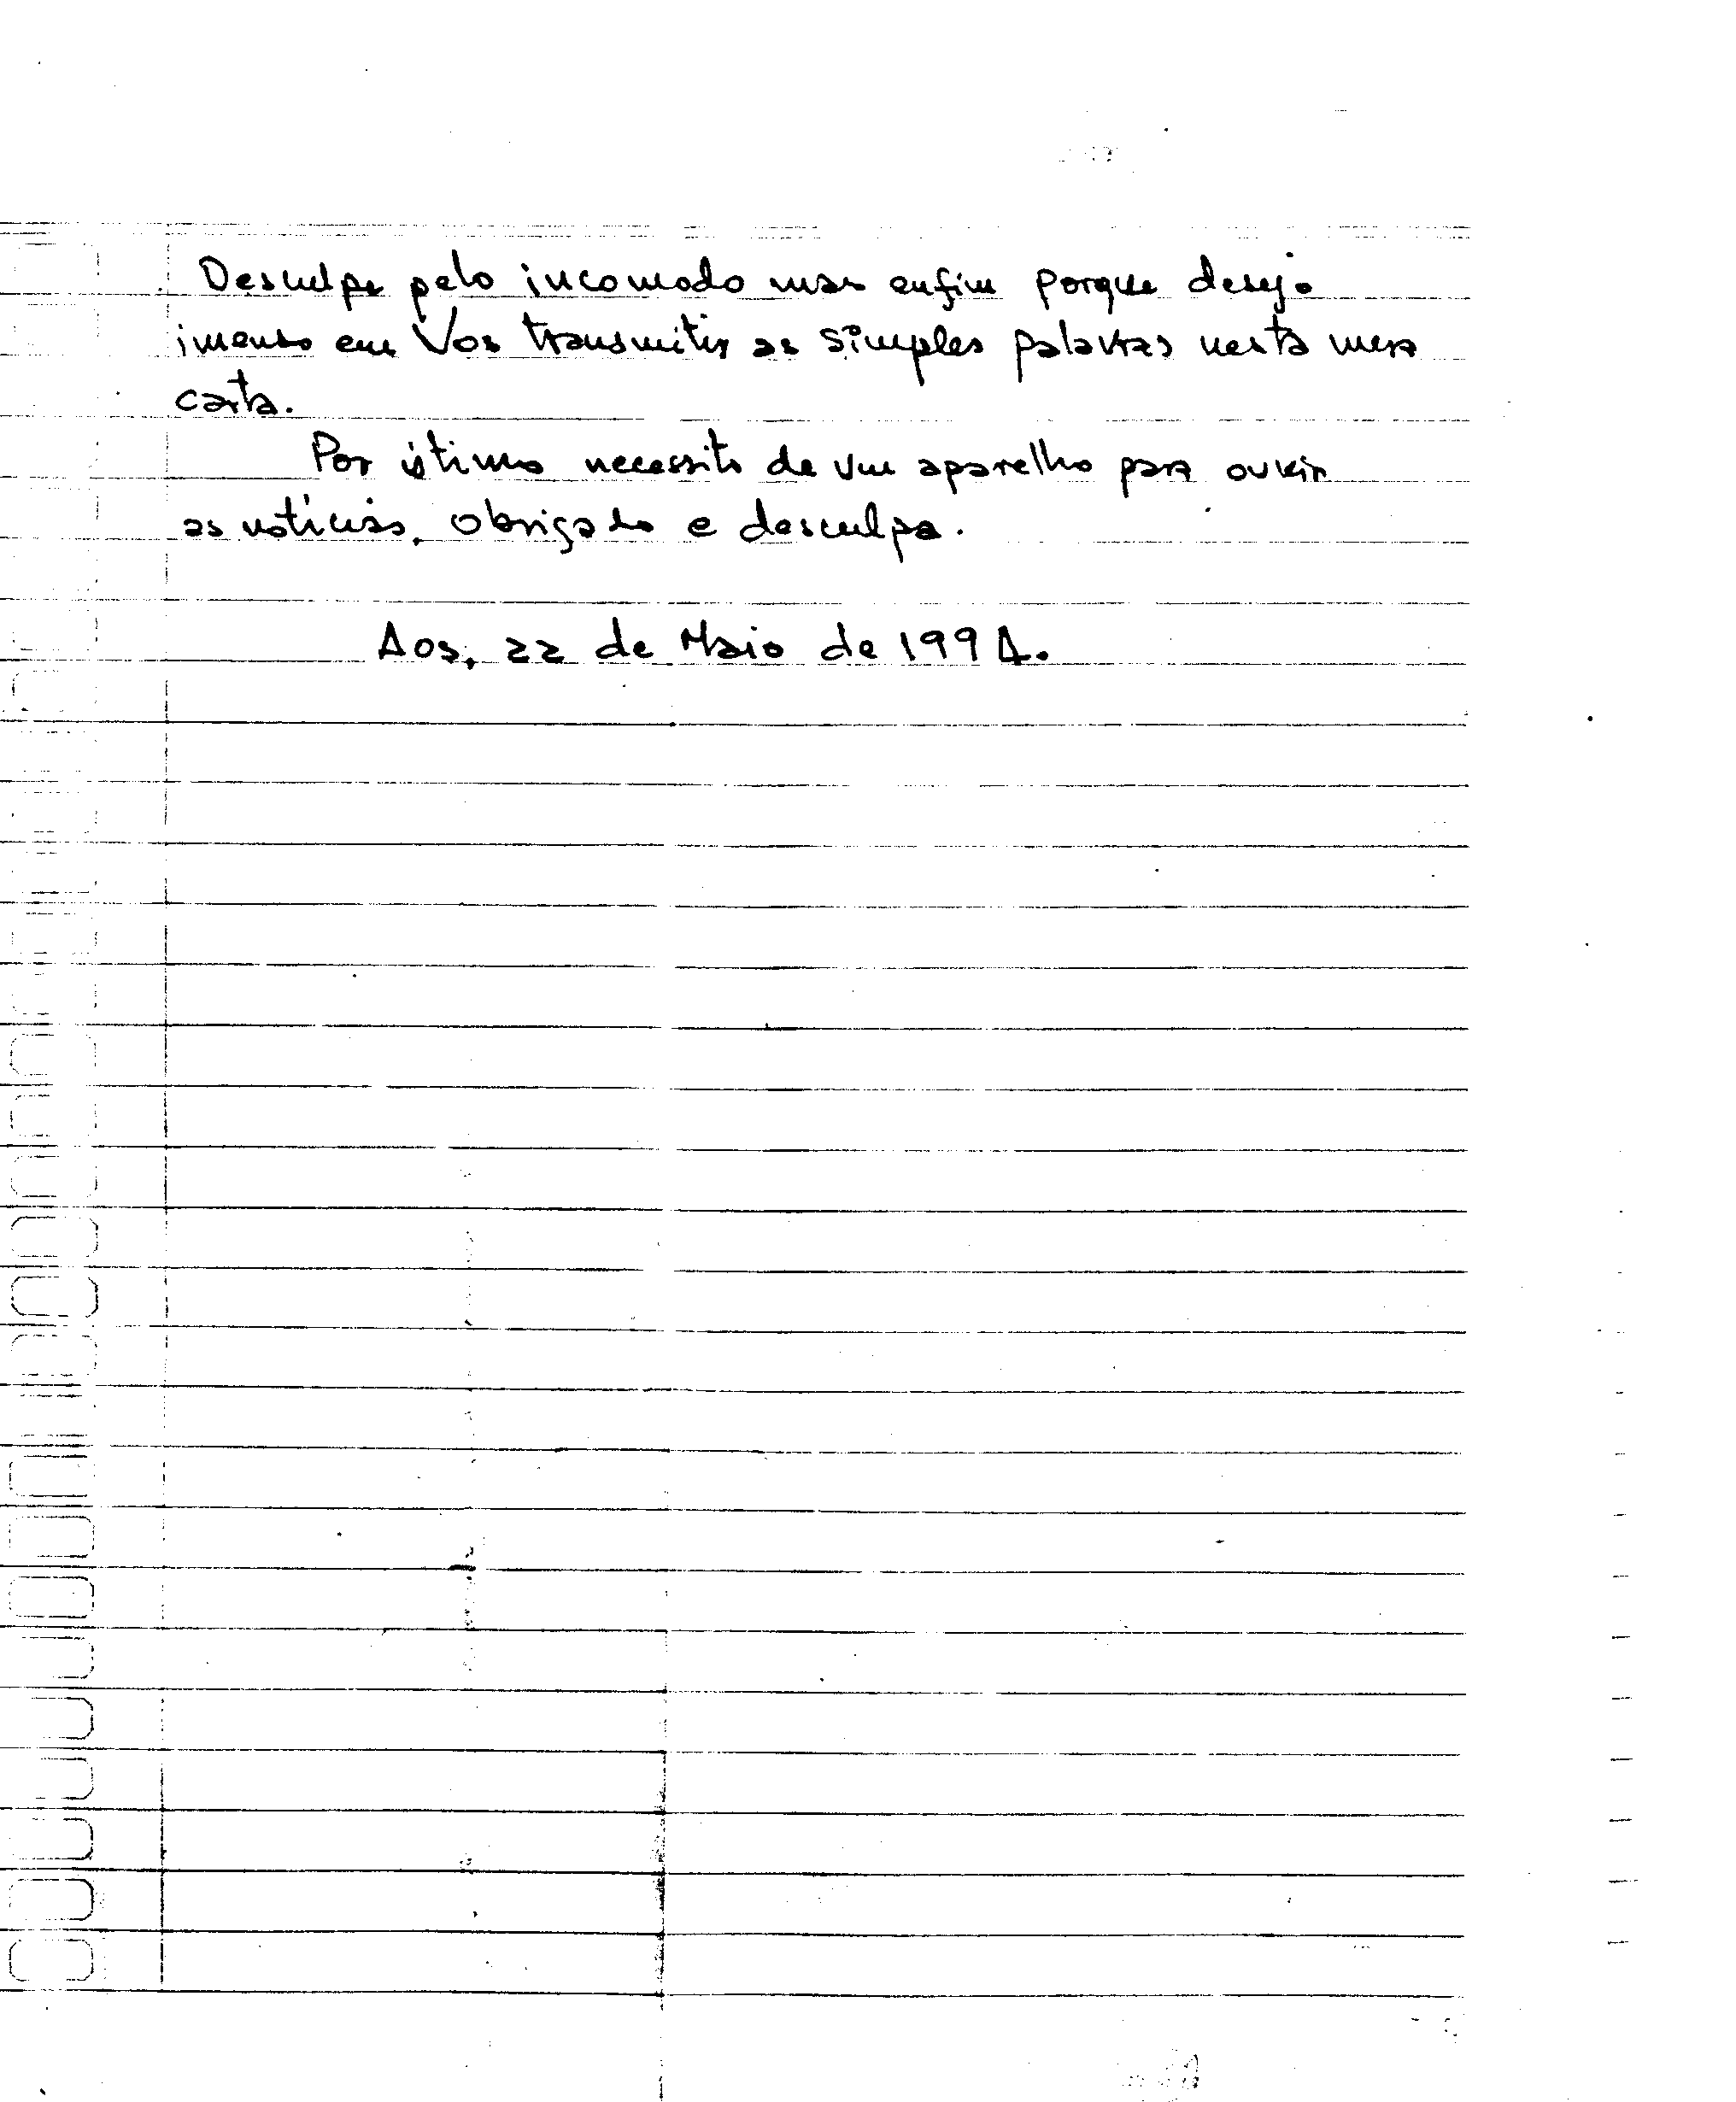 Desculpe pelo incomodo mas enfim porque desejo
imenso em Vos transmitir as simples palavras nesta mera
carta.
Por útimo necessito de um aparelho para ouvir
as notícias. Obrigado e desculpa.
Aos, 22 de Maio de 1994.